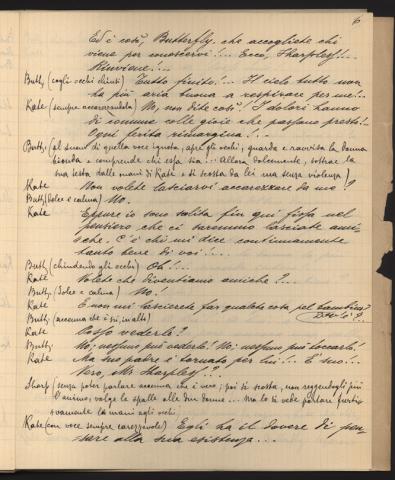 6
Ed è così, Butterfly, che accogliete chi
viene per conoscervi!... Ecco, Sharpless!...
Rinviene!...
Butt. (cogli occhi chiusi) Tutto finito!... Il cielo tutto non
ha più aria buona a respirare per me!..
Kate (sempre accarezzandola) No, non dite così! I dolori hanno
di comune colle gioie che passano presto!..
Ogni ferita rimargina!...
Butt. (al suono di quella voce ignota, apre gli occhi, guarda e ravvisa la donna
bionda e comprende chi essa sia... Allora dolcemente, sottrae la
sua testa dalle mani di Kate e si scosta da lei ma senza violenza)
Kate Non volete lasciarvi accarezzare da me?
Butt. (dolce e calma) No.
Kate Eppure io sono salita fin qui fissa nel
pensiero che ci saremmo lasciate ami-
che. C'è chi mi dice continuamente
tanto bene di voi!...
Butt. (chiudendo gli occhi) Oh!...
Kate Volete che diventiamo amiche?...
Butt. (dolce e calma) No!
Kate E non mi lascerete far qualche cosa pel bambino?
Dov'è?..
Butt. (accenna che è su, in alto)
Kate Posso vederlo?
Butt. No; nessuno può vederlo! No; nessuno può toccarlo!
Kate Ma suo padre è tornato per lui!.. È suo!...
Vero, Mr. Sharpless?..
Sharp. (senza poter parlare accenna che è vero; poi si scosta, non reggendogli più
l'animo, volge le spalle alle due donne... Ma lo si vede portare furti-
vamente la mani agli occhi.
Kate (con voce sempre carezzevole) Egli ha il dovere di pen-
sare alla sua esistenza...